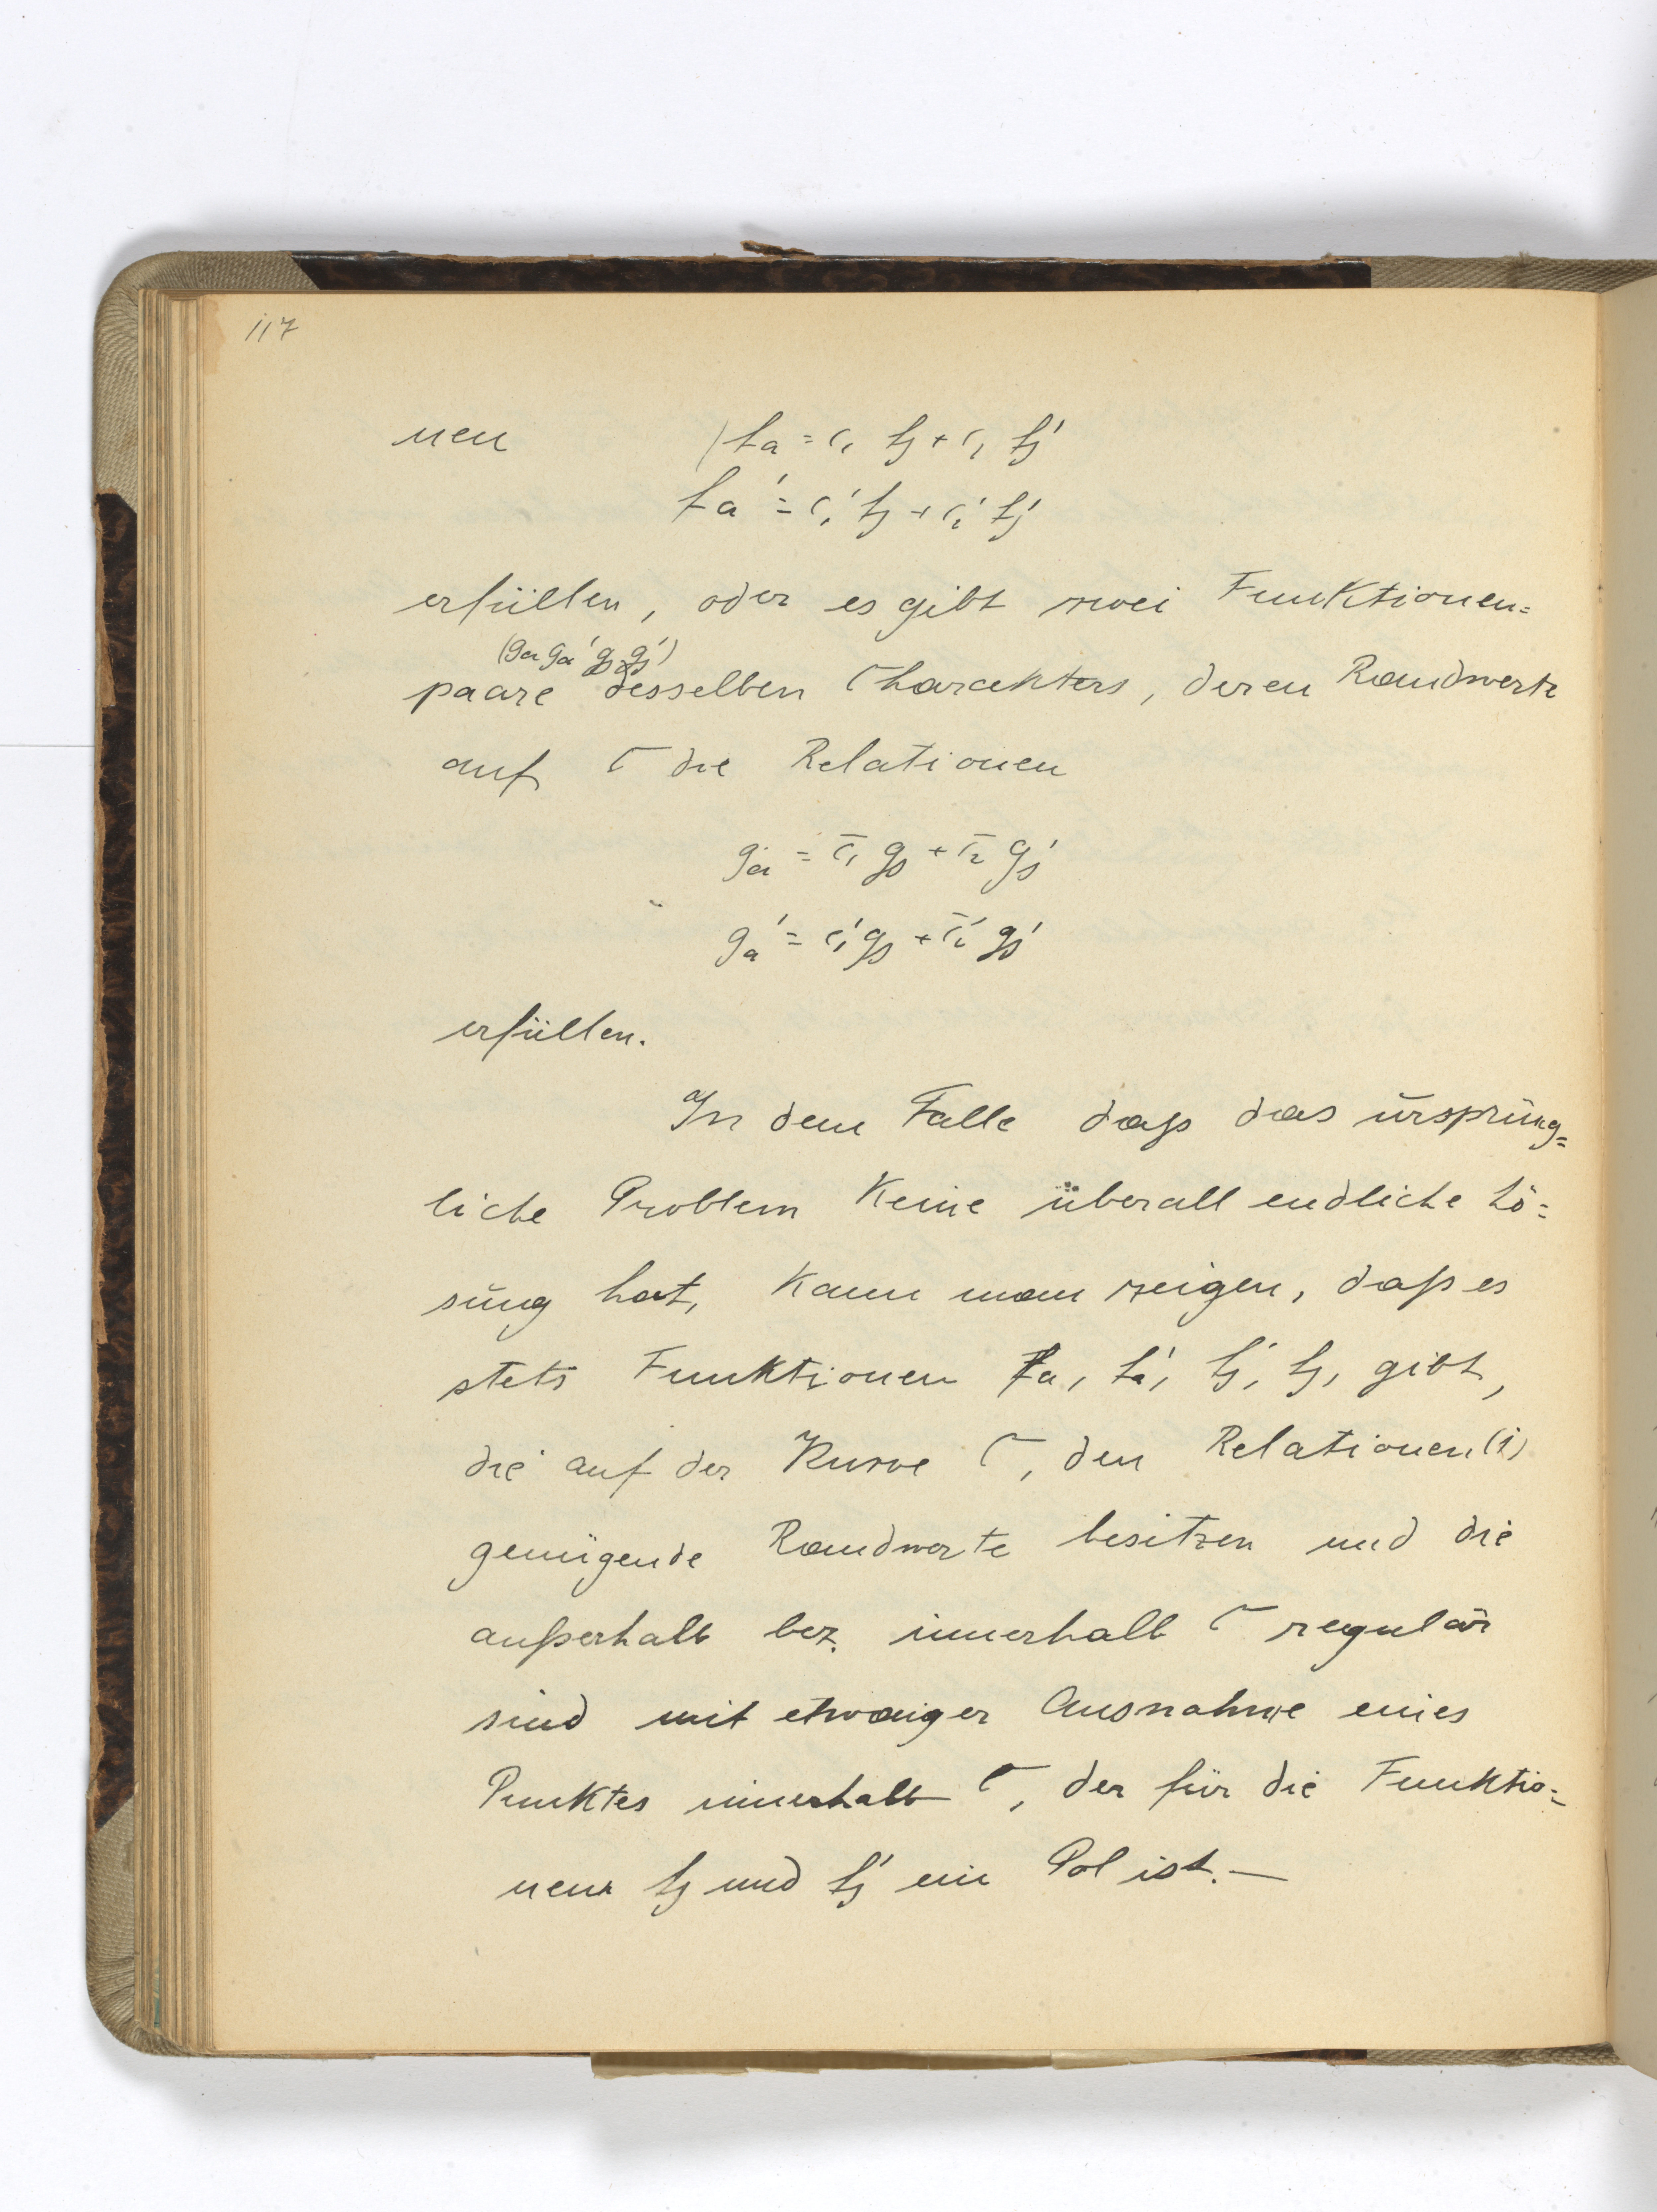 117
nen (fa = c₁ fj + c₂ fj'
fa' = c₁' fj + c₂' fj'
erfüllen, oder es gibt zwei Funktionen=
(ga ga' gj gj')
paare desselben Charakters, deren Randwerte
auf C die Relationen
ga = c̄₁ gj + c̄₂ gj'
ga' = c̄₁' gj + c̄₂' gj'
erfüllen.
In dem Falle daß das ursprüng=
liche Problem Keine überall endliche Lö=
sung hat, Kann man zeigen, daß es
stets Funktionen fa, fa', fj', fj, gibt,
die auf der Kurve C, den Relationen (1)
genügende Randwerte besitzen und die
außerhalb bez. innerhalb C regulär
sind mit etwaiger Ausnahme eines
Punktes innerhalb C, der für die Funktio=
nen fj und fj' ein Pol ist. —